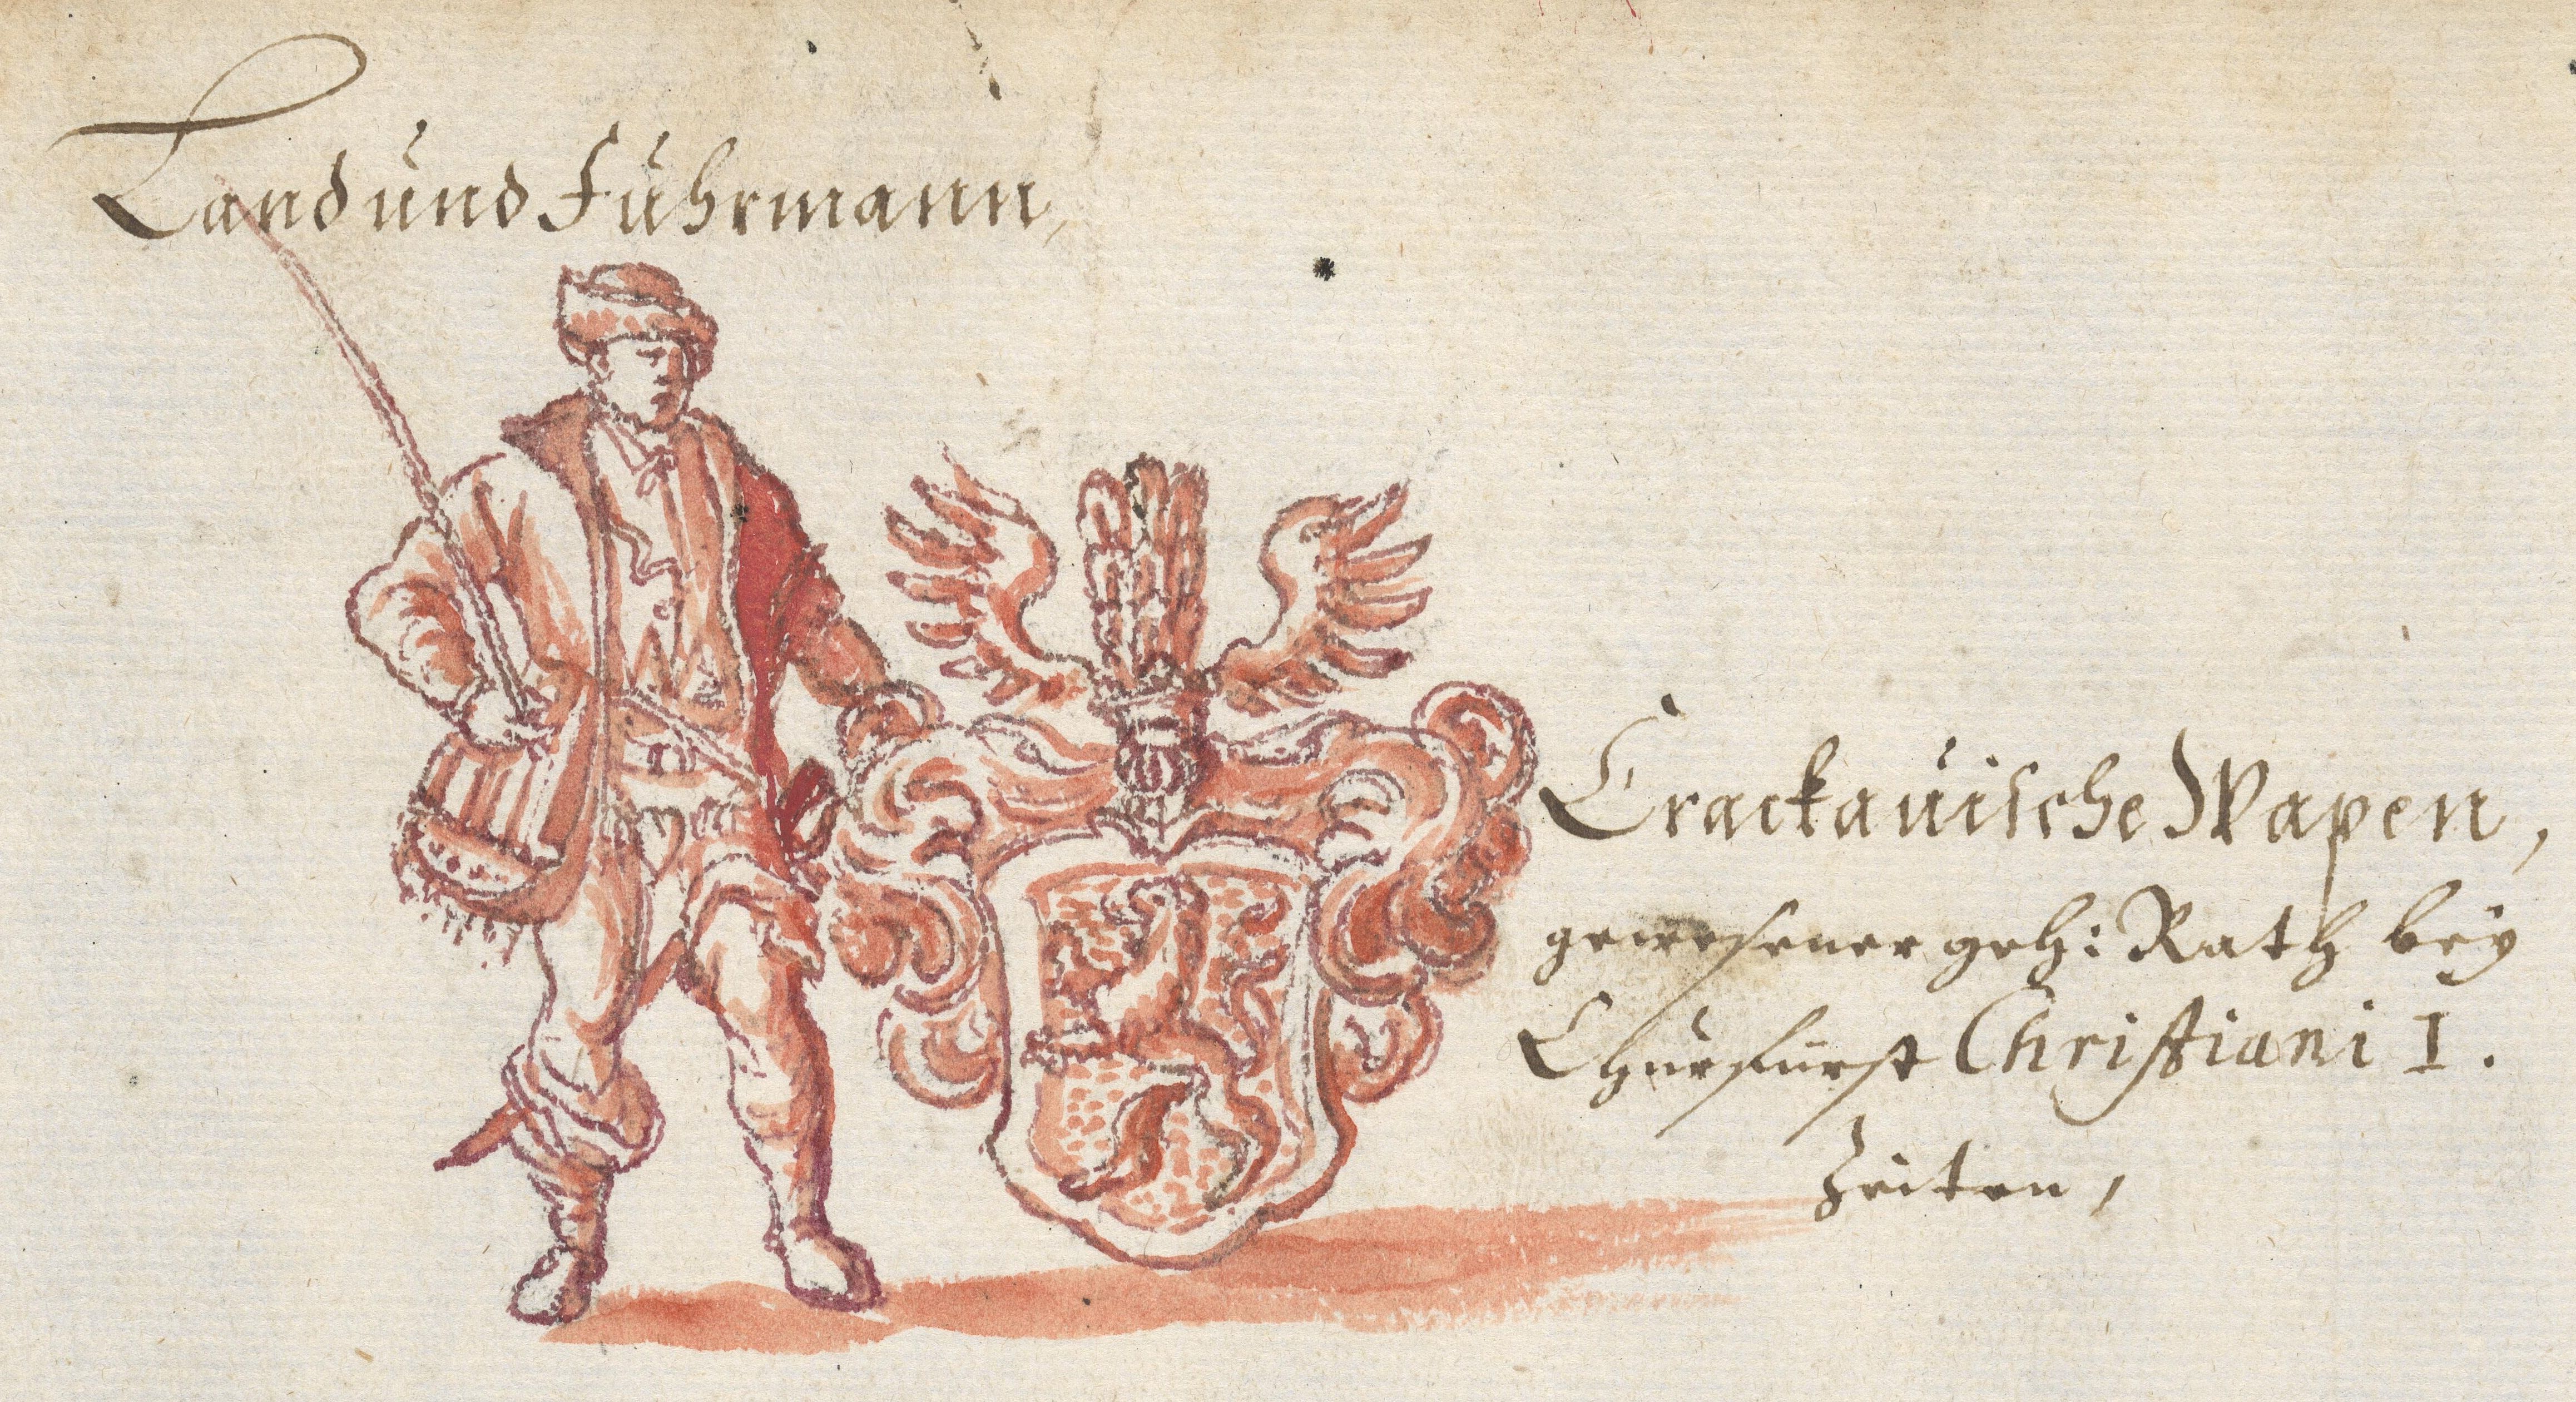 Land und Fuhrmann,
Crackauische Wapen,
gewesener geh: Rath bey
Churfürst Christiani I.
Zeiten,